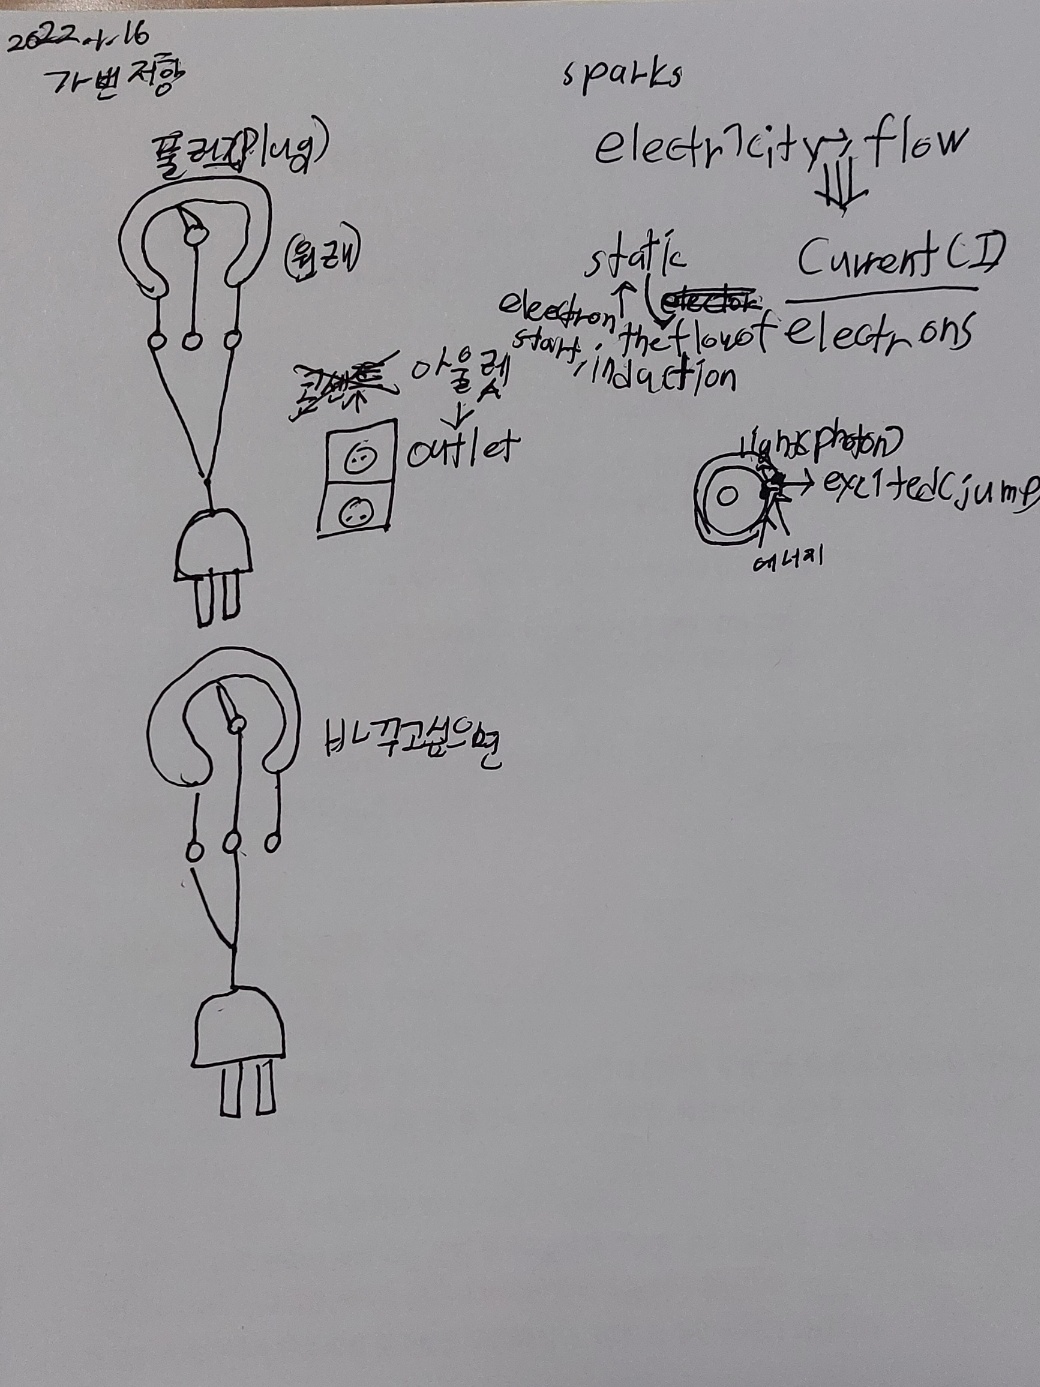 2022.1.16
가변저항
플러그(Plug)
(원래)
콘센트 아울렛
outlet
바꾸고싶으면
sparks
electricity → flow
static
Current(I)
electron
start, the flow of electrons
induction
light(photon)
excited(jump)
에너지